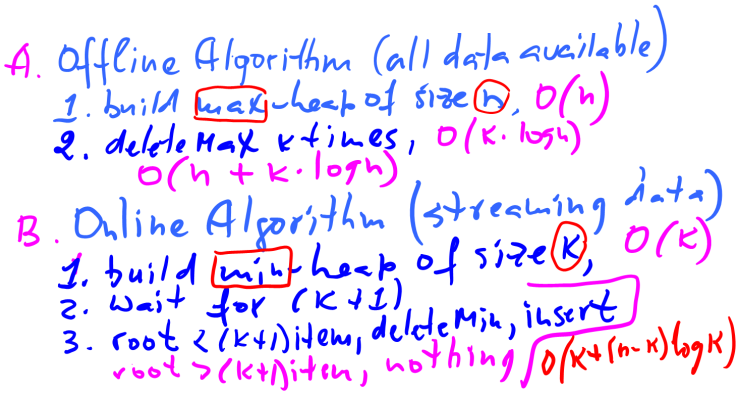 A. Offline Algorithm (all data available)
1. build max-heap of size n, O(n)
2. deleteMax k times, O(k·logn)
O(n + k·logn)
B. Online Algorithm (streaming data)
1. build min-heap of size k, O(k)
2. wait for (k+1)
3. root < (k+1)item, deleteMin, insert
root > (k+1)item, nothing O(k+(n-k)logk)